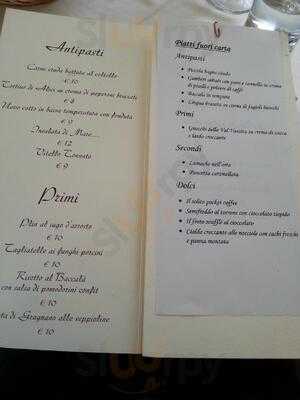 Antipasti
Carne cruda battuta al coltello
€ 10
Tortino di Alici su crema di peperone bruciato
€ 8
Uovo cotto in bassa temperatura con fonduta
€ 9
Insalata di Mare....
€ 12
Vitello Tonnato
€ 9
Primi
Plin al sugo d'arrosto
€ 10
Tagliatelle ai funghi porcini
€ 10
Risotto al Baccalà
con salsa di pomodorini confit
€ 10
di Gragnano alle seppioline
€ 10
Piatti fuori carta
Antipasti
• Piccolo bagno caodo
• Gamberi saltati con panna e vaniglia su crema
di piselli e polvere di caffè
• Baccalà in tempura
• Lingua brasata su crema di fagioli bianchi
Primi
• Gnocchi della Val Varaita su crema di zucca
e lardo croccante
Secondi
• Lumache nell'orto
• Pancetta caramellata
Dolci
• Il solito pocket coffee
• Semifreddo al torrone con cioccolato tiepido
• Il finto soufflè al cioccolato
• Cialda croccante alle nocciole con cachi freschi
e panna montata